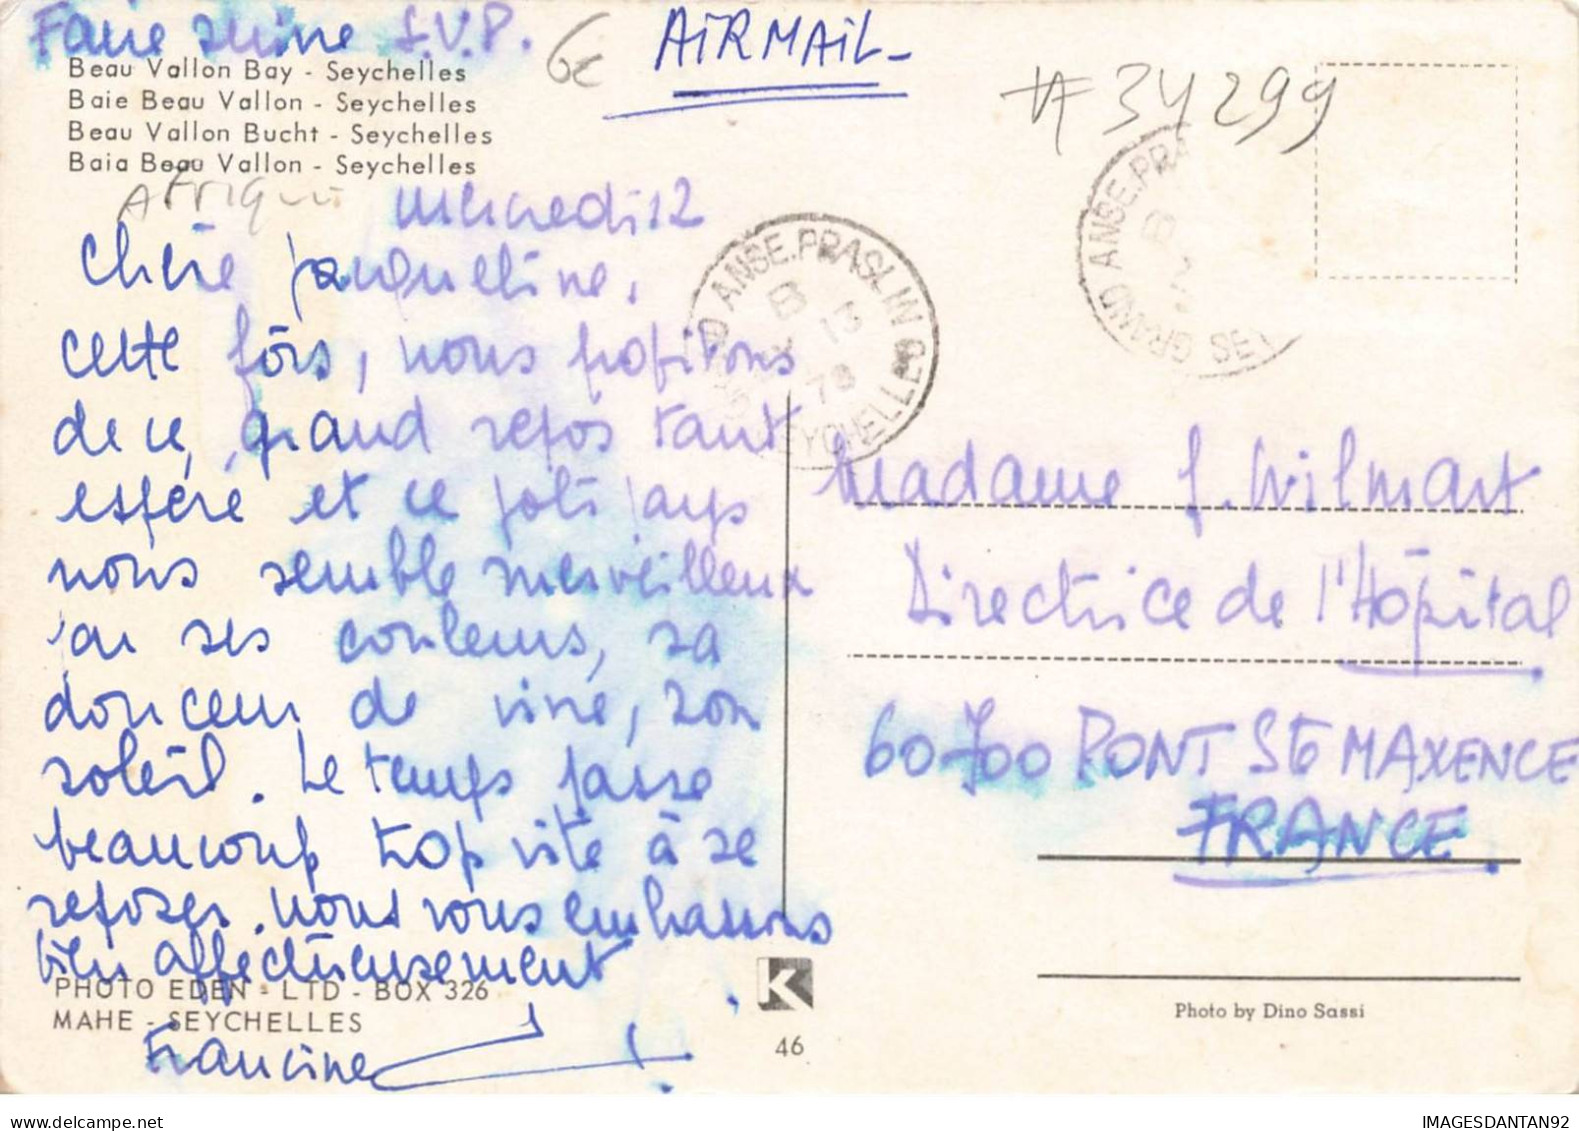 Faire suivre S.V.P.
6€
AiRMAiL
#34299
Beau Vallon Bay - Seychelles
Baie Beau Vallon - Seychelles
Beau Vallon Bucht - Seychelles
Baia Beau Vallon - Seychelles
AFrique
Mercredi 12
Chère Jacqueline,
cette fois, nous profitons
de ce grand repos tant
espéré et ce joli pays
nous semble merveilleux
par ses couleurs, sa
douceur de vivre, son
soleil. Le temps passe
beaucoup trop vite à se
reposer. Nous vous embrassons
bien affectueusement.
Francine
GRAND ANSE.PRASLIN
B
13
78
SEYCHELLES
GRAND ANSE.PRA
B
LES
Madame J. Wilmart
Directrice de l'Hôpital
60700 PONT STE MAXENCE
FRANCE.
PHOTO EDEN - LTD - BOX 326
MAHE - SEYCHELLES
K
46
Photo by Dino Sassi
delcampe.net
IMAGESDANTAN92